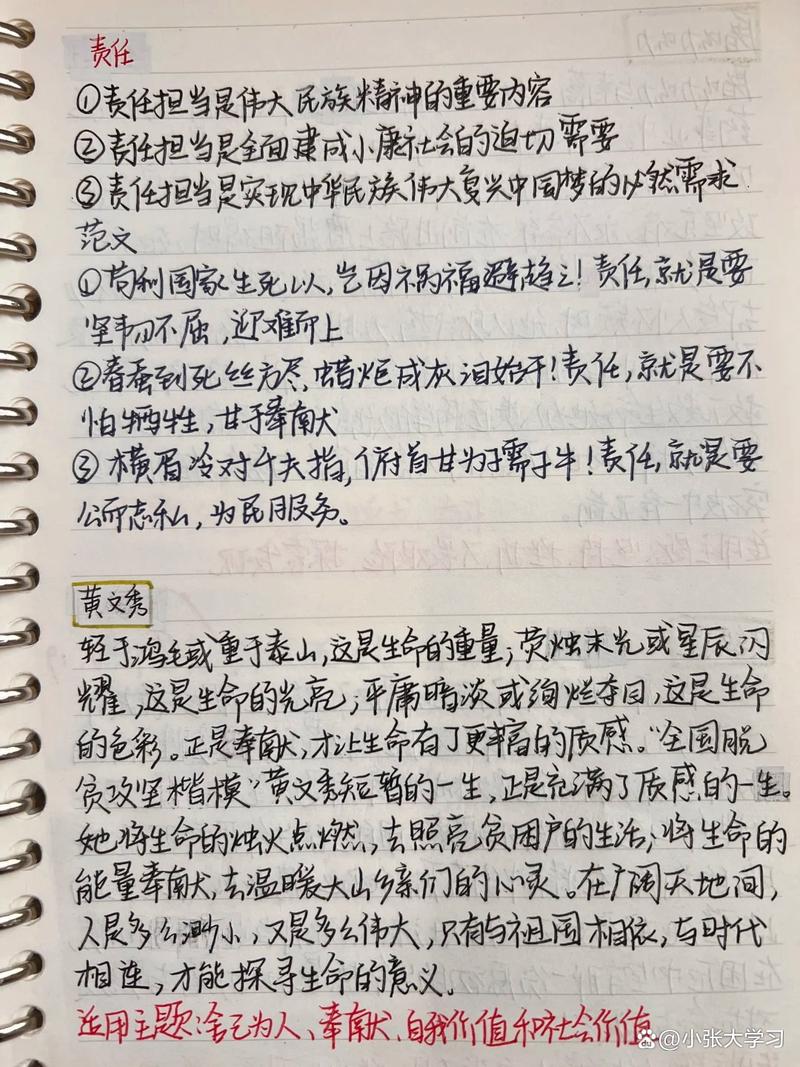 责任
①责任担当是伟大民族精神的重要内容
②责任担当是全面建成小康社会的迫切需要
③责任担当是实现中华民族伟大复兴中国梦的必然需求
范文
①苟利国家生死以,岂因祸福避趋之!责任,就是要
坚韧不屈,迎难而上
②春蚕到死丝方尽,蜡炬成灰泪始干!责任,就是要不
怕牺牲,甘于奉献
③横眉冷对千夫指,俯首甘为孺子牛!责任,就是要
公而忘私,为民服务。
黄文秀
轻于鸿毛或重于泰山,这是生命的重量;荧烛末光或星辰闪
耀,这是生命的光亮;平庸暗淡或绚烂夺目,这是生命
的色彩。正是奉献,才让生命有了更丰富的质感。“全国脱
贫攻坚楷模”黄文秀短暂的一生,正是充满了质感的一生。
她将生命的烛火点燃,去照亮贫困户的生活;将生命的
能量奉献,去温暖大山乡亲们的心灵。在广阔天地间,
人是多么渺小,又是多么伟大,只有与祖国相依,与时代
相连,才能探寻生命的意义。
适用主题:舍己为人、奉献、自我价值和社会价值
@小张大学习